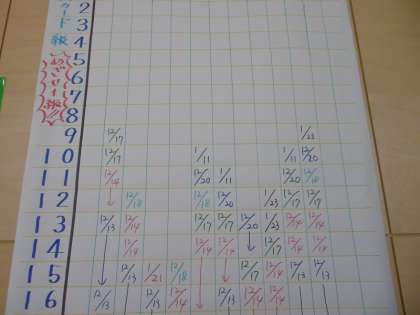 カード 級 めざせ1級!!
2
3
4
5
6
7
8
9 12/17 1/23
10 12/17 1/11 1/11 12/20
11 12/14 12/20 1/11 12/20 12/18
12 12/18 12/18 12/20 1/23 12/17 12/17
13 12/13 12/14 12/17 12/17 12/20 1/23 12/14 12/14
14 12/14 12/14 12/14 12/17 12/14 12/14
15 12/13 1/21 12/18 12/17 12/14 12/13 12/13
16 12/13 12/13 12/14 12/13 12/14 12/14